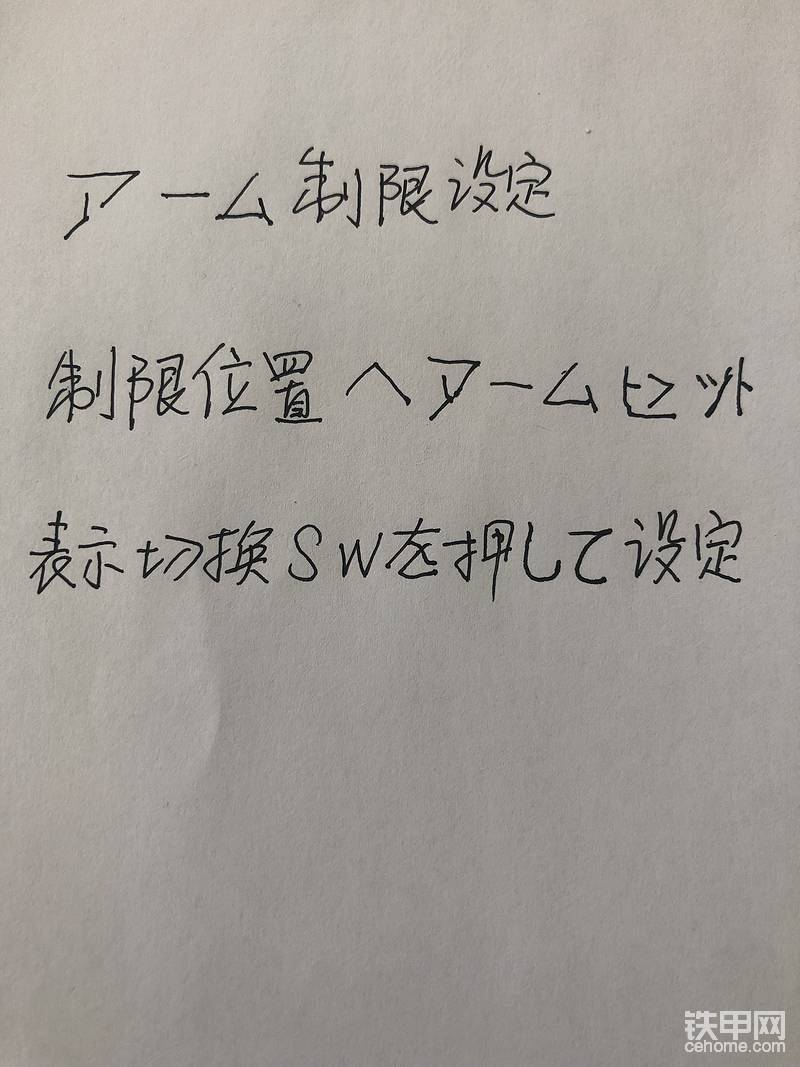 アーム制限設定
制限位置へアームセット
表示切換SWを押して設定
铁甲网
cehome.com